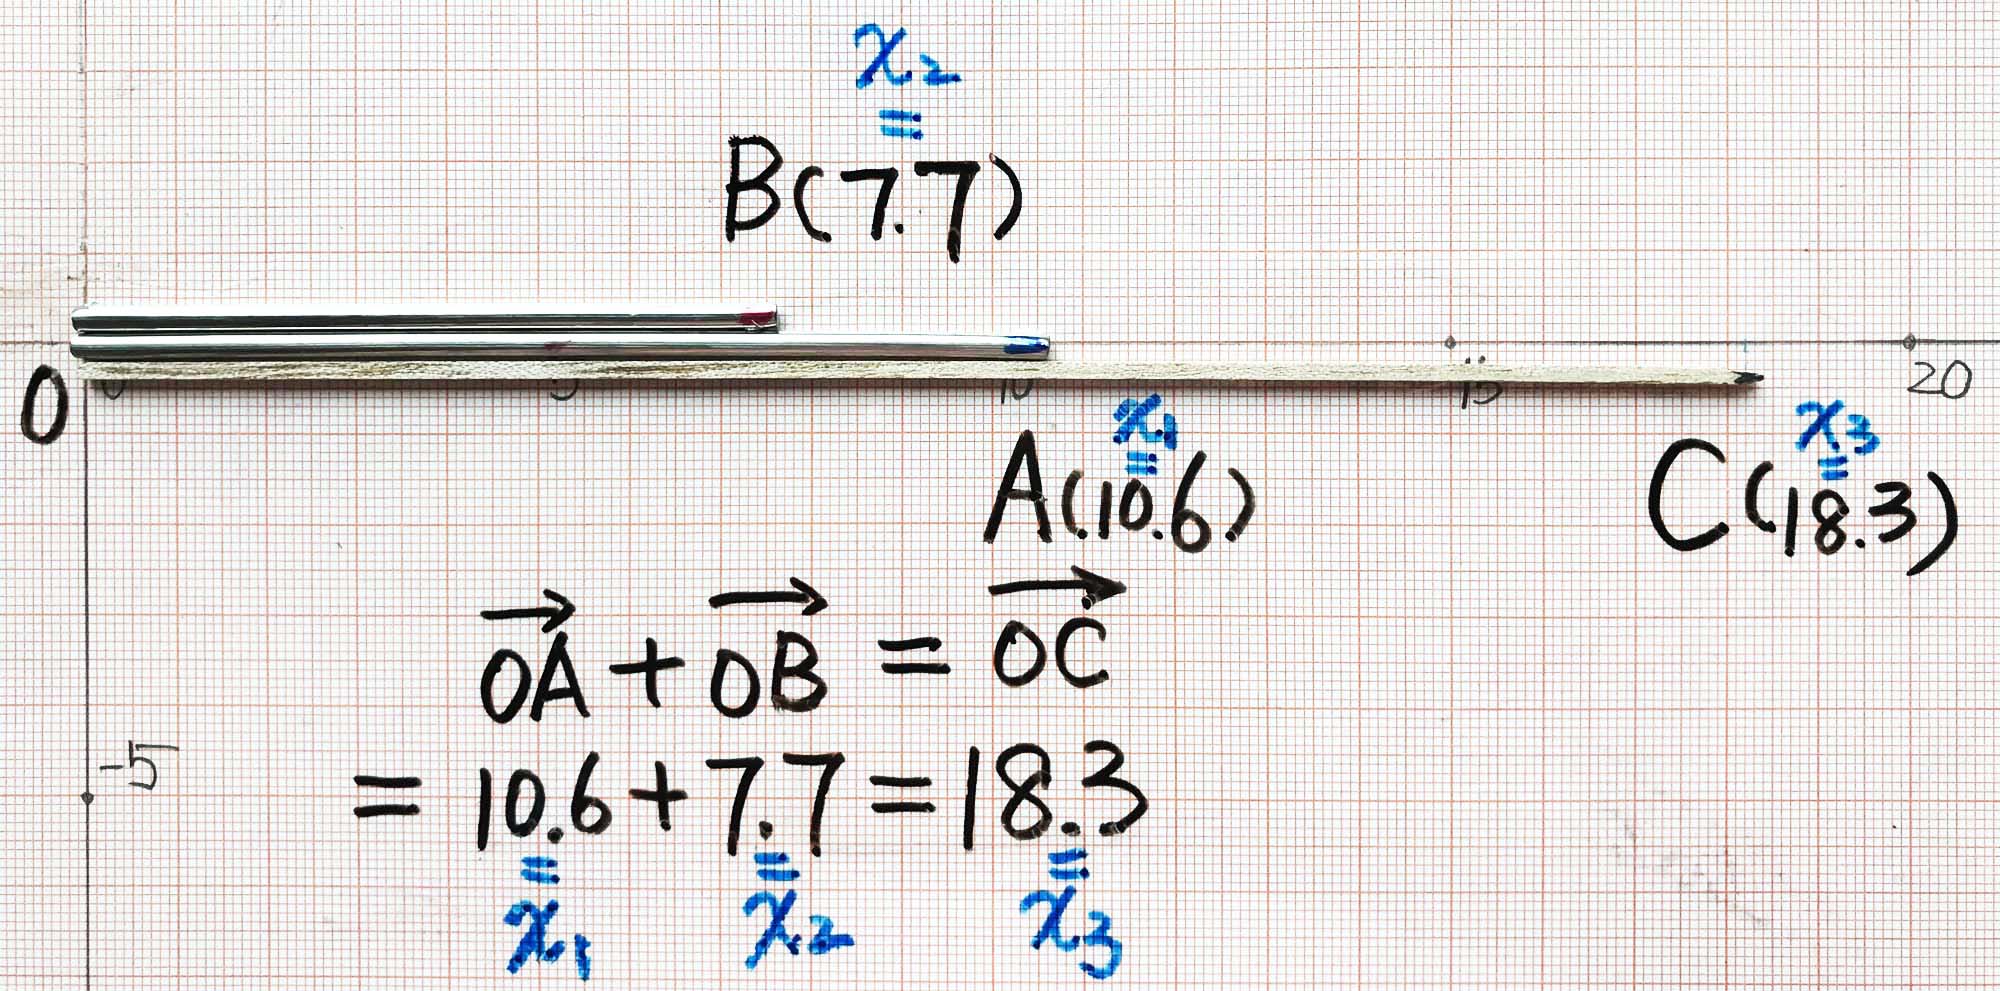 x₂
=
B(7.7)
0 5 10 15 20
O
x₁ x₃
= =
A(10.6) C(18.3)
→ → →
OA + OB = OC
-5
= 10.6 + 7.7 = 18.3
= = =
x₁ x₂ x₃